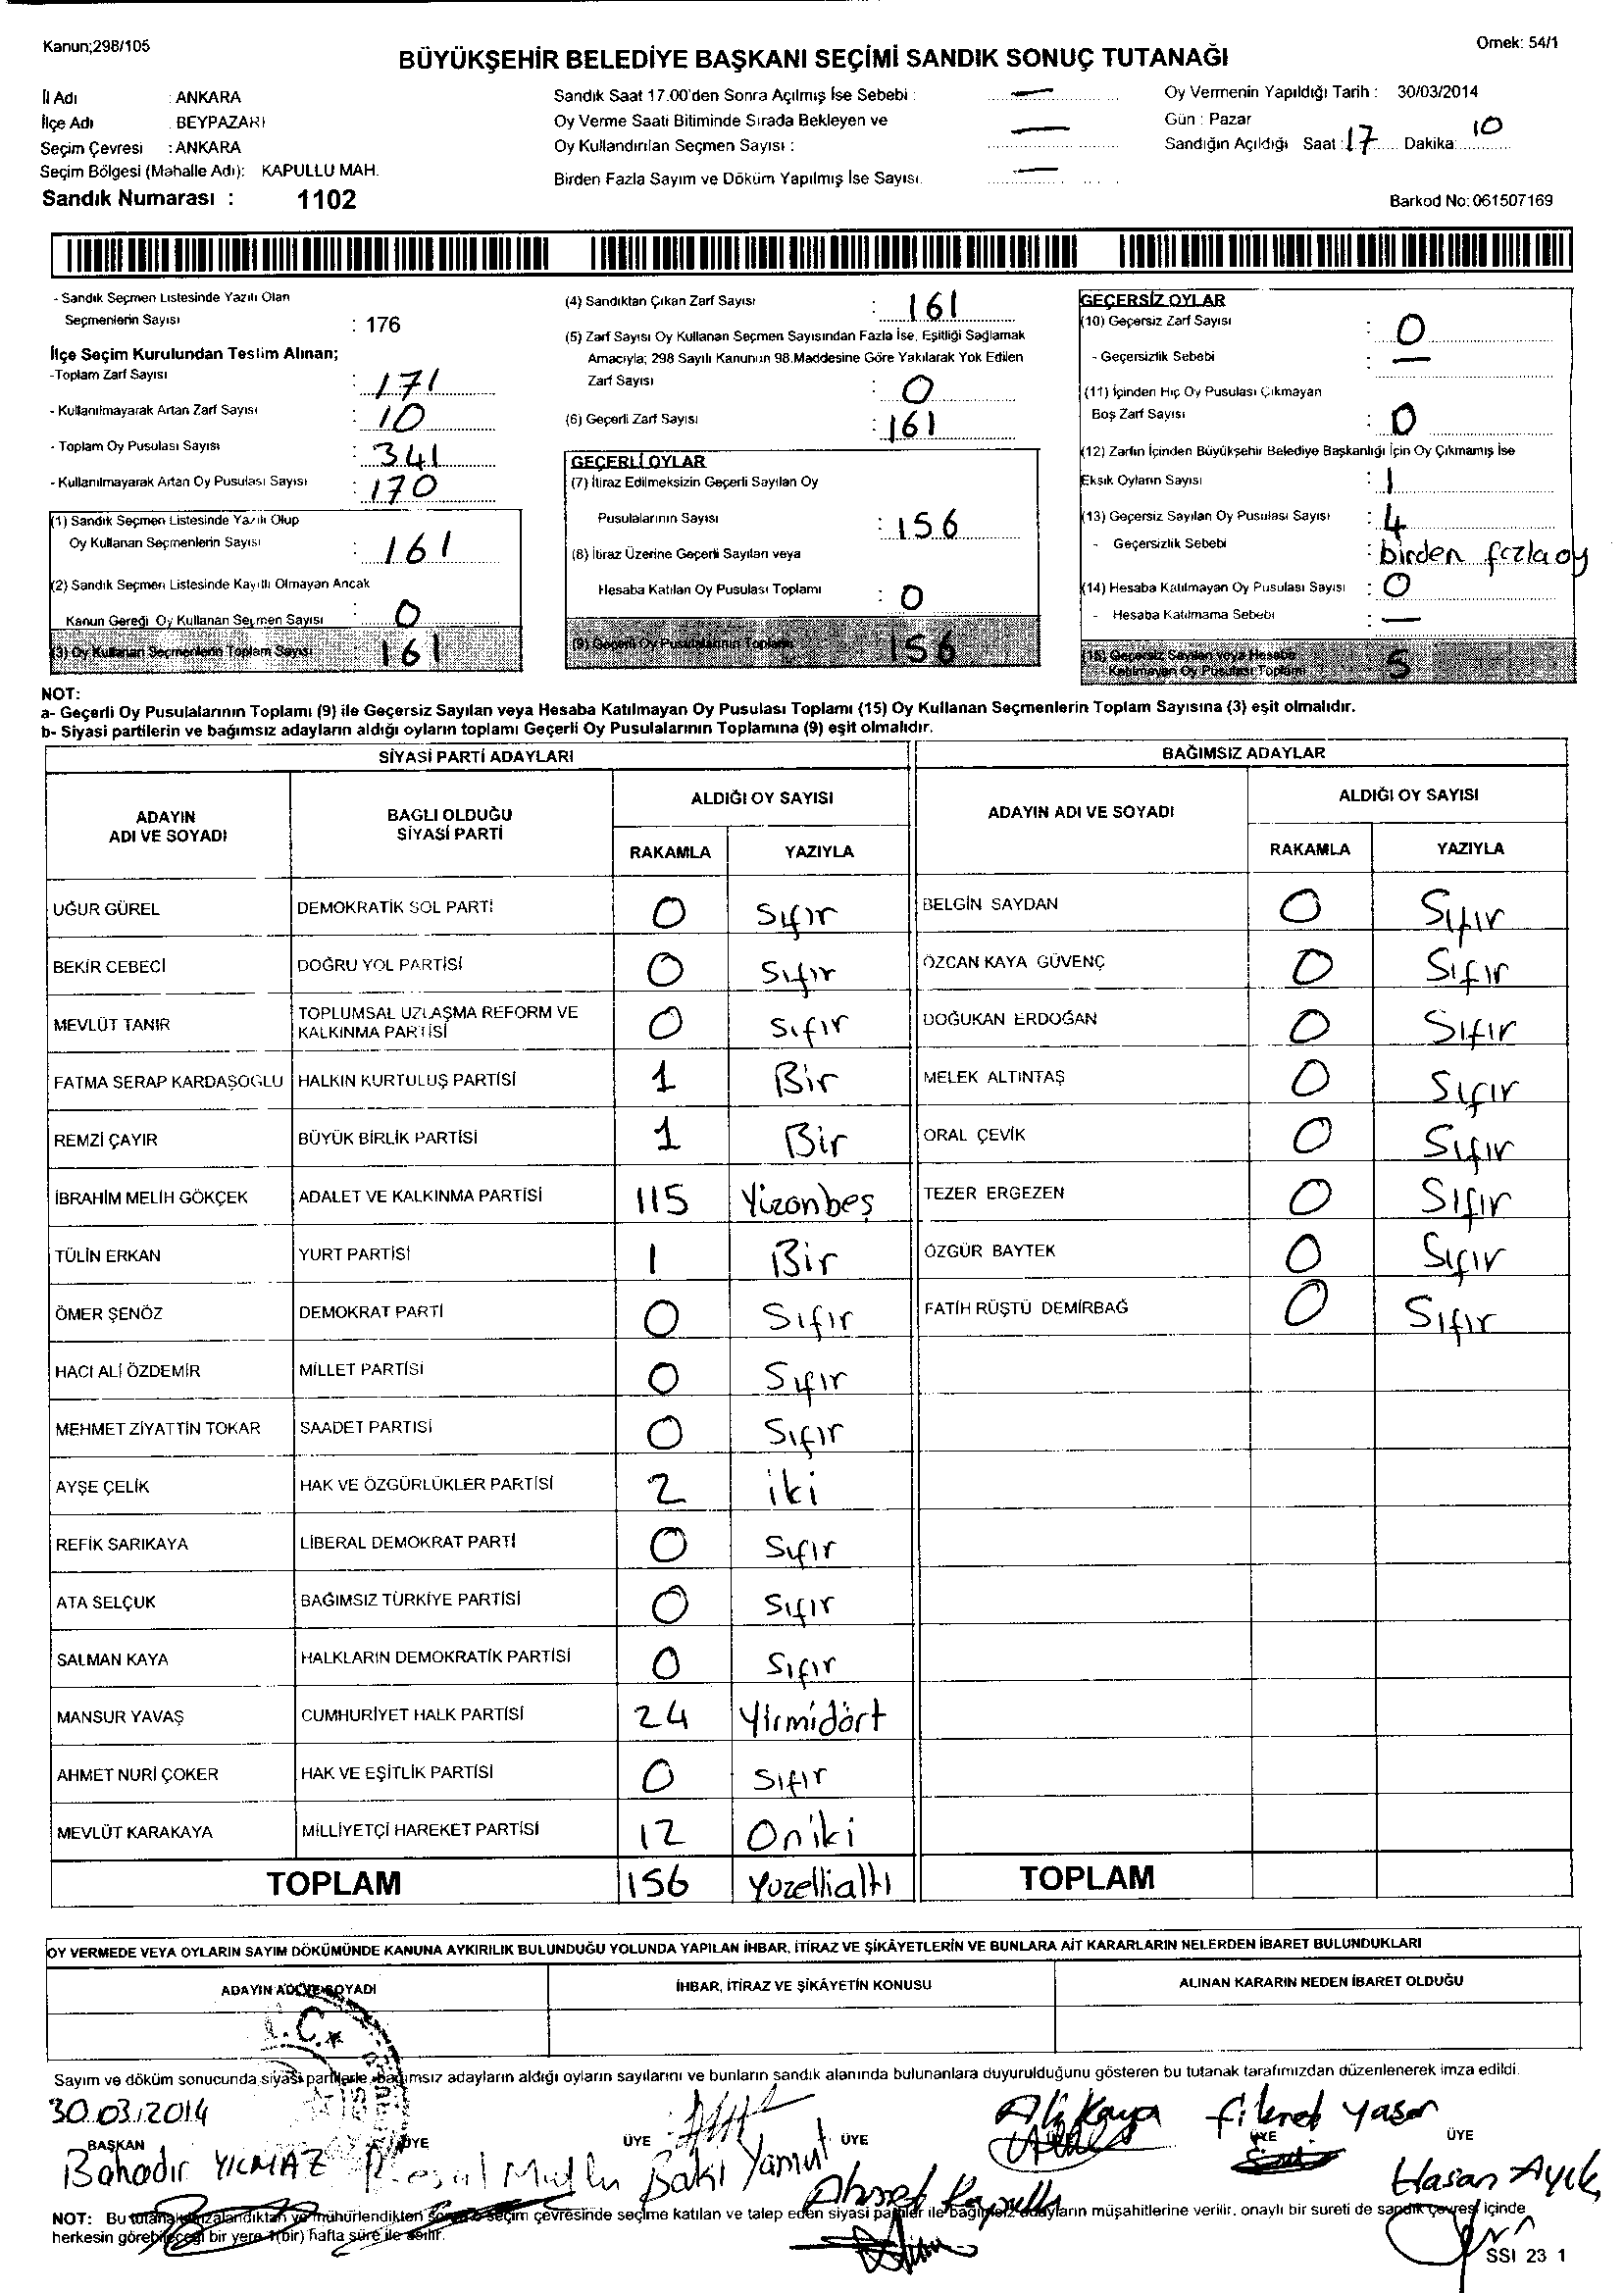 Kanun;298/105
Ornek: 54/1
BÜYÜKŞEHİR BELEDİYE BAŞKANI SEÇİMİ SANDIK SONUÇ TUTANAĞI
İl Adı : ANKARA
İlçe Adı : BEYPAZARI
Seçim Çevresi : ANKARA
Seçim Bölgesi (Mahalle Adı): KAPULLU MAH.
Sandık Numarası : 1102
Sandık Saat 17.00'den Sonra Açılmış İse Sebebi : —
Oy Verme Saati Bitiminde Sırada Bekleyen ve
Oy Kullandırılan Seçmen Sayısı : —
Birden Fazla Sayım ve Döküm Yapılmış İse Sayısı. —
Oy Vermenin Yapıldığı Tarih : 30/03/2014
Gün : Pazar
Sandığın Açıldığı Saat : 17 Dakika: 10
Barkod No: 061507169
- Sandık Seçmen Listesinde Yazılı Olan
Seçmenlerin Sayısı : 176
İlçe Seçim Kurulundan Teslim Alınan;
-Toplam Zarf Sayısı : 171
- Kullanılmayarak Artan Zarf Sayısı : 10
- Toplam Oy Pusulası Sayısı : 341
- Kullanılmayarak Artan Oy Pusulası Sayısı : 170
(1) Sandık Seçmen Listesinde Yazılı Olup
Oy Kullanan Seçmenlerin Sayısı : 161
(2) Sandık Seçmen Listesinde Kayıtlı Olmayan Ancak
Kanun Gereği Oy Kullanan Seçmen Sayısı : 0
(3) Oy Kullanan Seçmenlerin Toplam Sayısı : 161
(4) Sandıktan Çıkan Zarf Sayısı : 161
(5) Zarf Sayısı Oy Kullanan Seçmen Sayısından Fazla İse, Eşitliği Sağlamak
Amacıyla; 298 Sayılı Kanunun 98.Maddesine Göre Yakılarak Yok Edilen
Zarf Sayısı : 0
(6) Geçerli Zarf Sayısı : 161
GEÇERLİ OYLAR
(7) İtiraz Edilmeksizin Geçerli Sayılan Oy
Pusulalarının Sayısı : 156
(8) İtiraz Üzerine Geçerli Sayılan veya
Hesaba Katılan Oy Pusulası Toplamı : 0
(9) Geçerli Oy Pusulalarının Toplamı 156
GEÇERSİZ OYLAR
(10) Geçersiz Zarf Sayısı : 0
- Geçersizlik Sebebi : —
(11) İçinden Hiç Oy Pusulası Çıkmayan
Boş Zarf Sayısı : 0
(12) Zarfın İçinden Büyükşehir Belediye Başkanlığı İçin Oy Çıkmamış İse
Eksik Oyların Sayısı : 1
(13) Geçersiz Sayılan Oy Pusulası Sayısı : 4
- Geçersizlik Sebebi : birden fazla oy
(14) Hesaba Katılmayan Oy Pusulası Sayısı : 0
- Hesaba Katılmama Sebebi : —
(15) Geçersiz Sayılan veya Hesaba
Katılmayan Oy Pusulası Toplamı 5
NOT:
a- Geçerli Oy Pusulalarının Toplamı (9) ile Geçersiz Sayılan veya Hesaba Katılmayan Oy Pusulası Toplamı (15) Oy Kullanan Seçmenlerin Toplam Sayısına (3) eşit olmalıdır.
b- Siyasi partilerin ve bağımsız adayların aldığı oyların toplamı Geçerli Oy Pusulalarının Toplamına (9) eşit olmalıdır.
SİYASİ PARTİ ADAYLARI BAĞIMSIZ ADAYLAR
ADAYIN ADI VE SOYADI BAGLI OLDUĞU SİYASİ PARTİ ALDIĞI OY SAYISI ADAYIN ADI VE SOYADI ALDIĞI OY SAYISI
RAKAMLA YAZIYLA RAKAMLA YAZIYLA
UĞUR GÜREL DEMOKRATİK SOL PARTİ 0 Sıfır BELGİN SAYDAN 0 Sıfır
BEKİR CEBECİ DOĞRU YOL PARTİSİ 0 Sıfır ÖZCAN KAYA GÜVENÇ 0 Sıfır
MEVLÜT TANIR TOPLUMSAL UZLAŞMA REFORM VE KALKINMA PARTİSİ 0 Sıfır DOĞUKAN ERDOĞAN 0 Sıfır
FATMA SERAP KARDAŞOĞLU HALKIN KURTULUŞ PARTİSİ 1 Bir MELEK ALTINTAŞ 0 Sıfır
REMZİ ÇAYIR BÜYÜK BİRLİK PARTİSİ 1 Bir ORAL ÇEVİK 0 Sıfır
İBRAHİM MELİH GÖKÇEK ADALET VE KALKINMA PARTİSİ 115 Yizonbeş TEZER ERGEZEN 0 Sıfır
TÜLİN ERKAN YURT PARTİSİ 1 Bir ÖZGÜR BAYTEK 0 Sıfır
ÖMER ŞENÖZ DEMOKRAT PARTİ 0 Sıfır FATİH RÜŞTÜ DEMİRBAĞ 0 Sıfır
HACI ALİ ÖZDEMİR MİLLET PARTİSİ 0 Sıfır
MEHMET ZİYATTİN TOKAR SAADET PARTİSİ 0 Sıfır
AYŞE ÇELİK HAK VE ÖZGÜRLÜKLER PARTİSİ 2 iki
REFİK SARIKAYA LİBERAL DEMOKRAT PARTİ 0 Sıfır
ATA SELÇUK BAĞIMSIZ TÜRKİYE PARTİSİ 0 Sıfır
SALMAN KAYA HALKLARIN DEMOKRATİK PARTİSİ 0 Sıfır
MANSUR YAVAŞ CUMHURİYET HALK PARTİSİ 24 Yirmidört
AHMET NURİ ÇOKER HAK VE EŞİTLİK PARTİSİ 0 Sıfır
MEVLÜT KARAKAYA MİLLİYETÇİ HAREKET PARTİSİ 12 Oniki
TOPLAM 156 Yüzellialtı TOPLAM
OY VERMEDE VEYA OYLARIN SAYIM DÖKÜMÜNDE KANUNA AYKIRILIK BULUNDUĞU YOLUNDA YAPILAN İHBAR, İTİRAZ VE ŞİKÂYETLERİN VE BUNLARA AİT KARARLARIN NELERDEN İBARET BULUNDUKLARI
ADAYIN ADI VE SOYADI İHBAR, İTİRAZ VE ŞİKÂYETİN KONUSU ALINAN KARARIN NEDEN İBARET OLDUĞU
T.C.
Sayım ve döküm sonucunda siyasi partilerle, bağımsız adayların aldığı oyların sayılarını ve bunların sandık alanında bulunanlara duyurulduğunu gösteren bu tutanak tarafımızdan düzenlenerek imza edildi.
30.03.2014
Ali Kaya Fikret Yaşar
BAŞKAN ÜYE ÜYE ÜYE ÜYE ÜYE
Bahadır YILMAZ Resul Mutlu Baki Yamut Ahmet Hasan Ayık
NOT: Bu tutanak imzalandıktan ve mühürlendikten sonra seçim çevresinde seçime katılan ve talep eden siyasi partiler ile bağımsız adayların müşahitlerine verilir. onaylı bir sureti de sandık çevresi içinde
herkesin görebileceği bir yere 1(bir) hafta süre ile asılır.
SSI 23 1